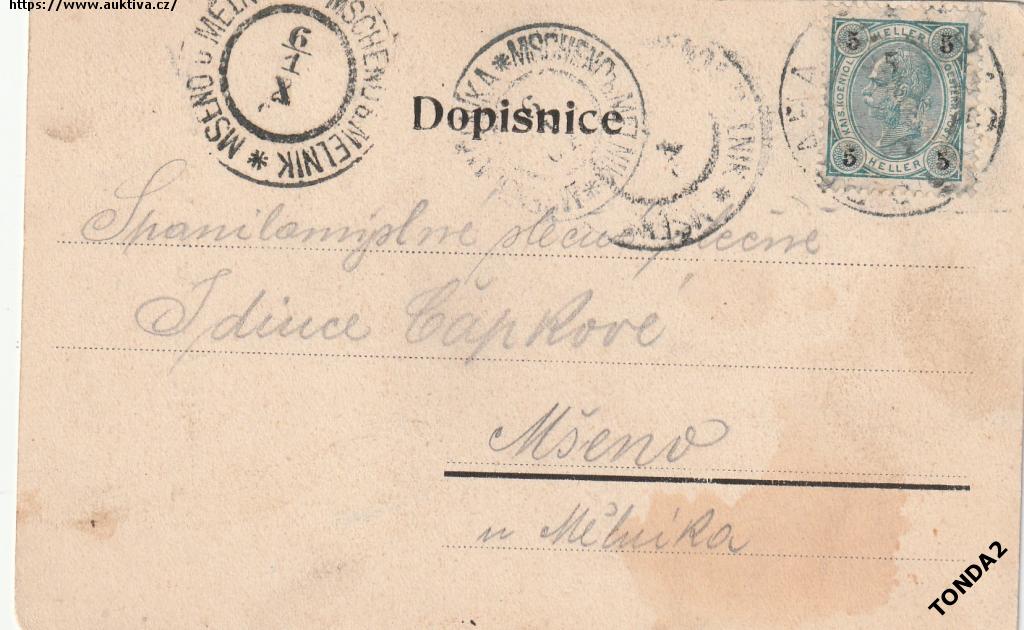 https://www.auktiva.cz/
MŠENO U MĚLN
MSCHENO b. MELNIK *
6
MSCHENO b. MELNIK *
Dopisnice
5 HELLER 5
5 HELLER 5
Spanilomyslné slečně
Idince Čápkové
Mšeno
u Mělníka
TONDA2